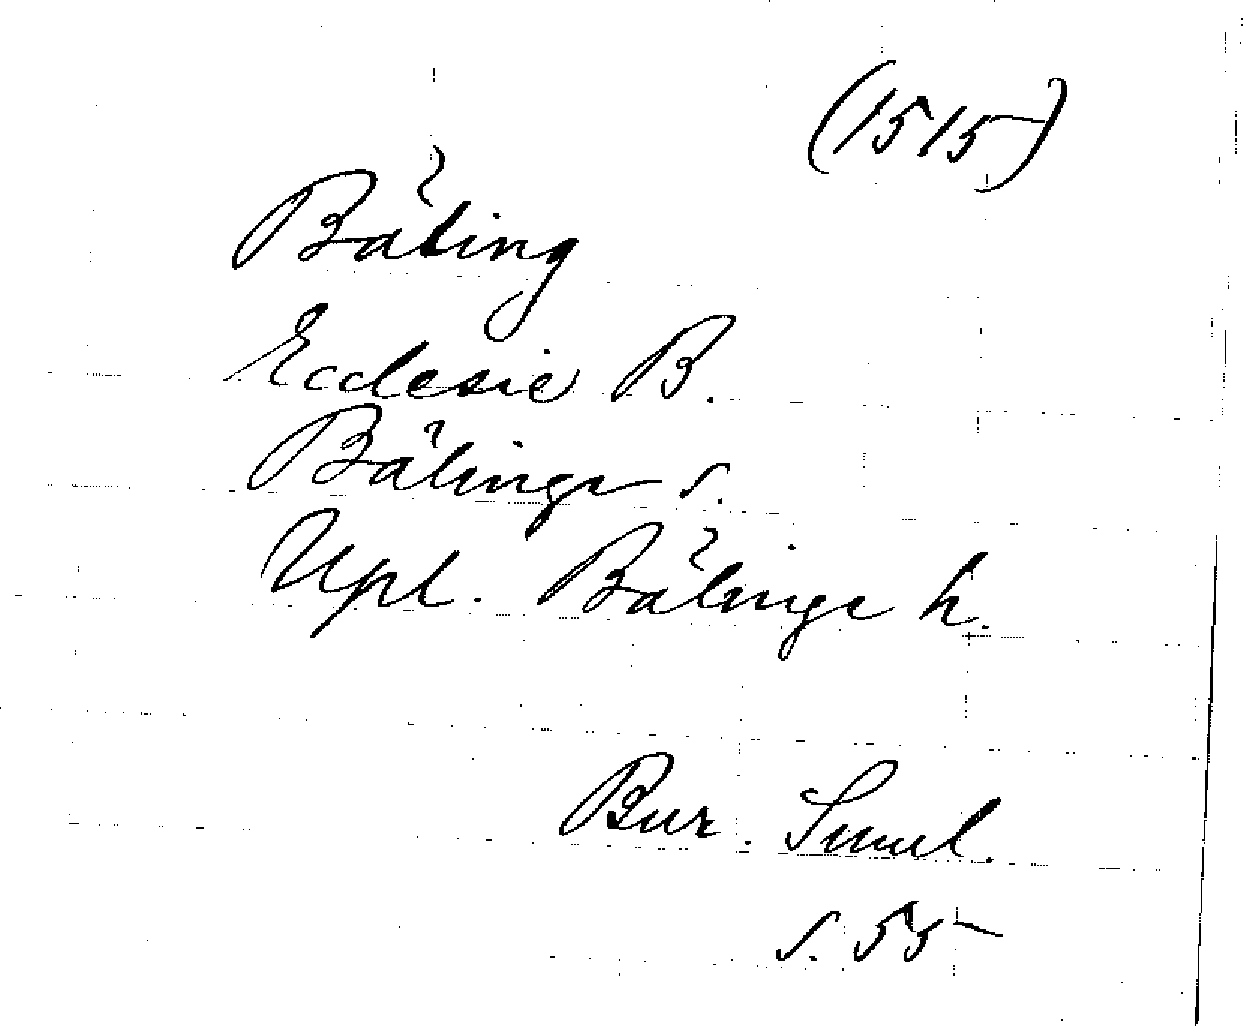 (1515)
Båling
Ecclesie B.
Bälinge s.
Upl. Bälinge h.
Bur. Sml.
s. 55